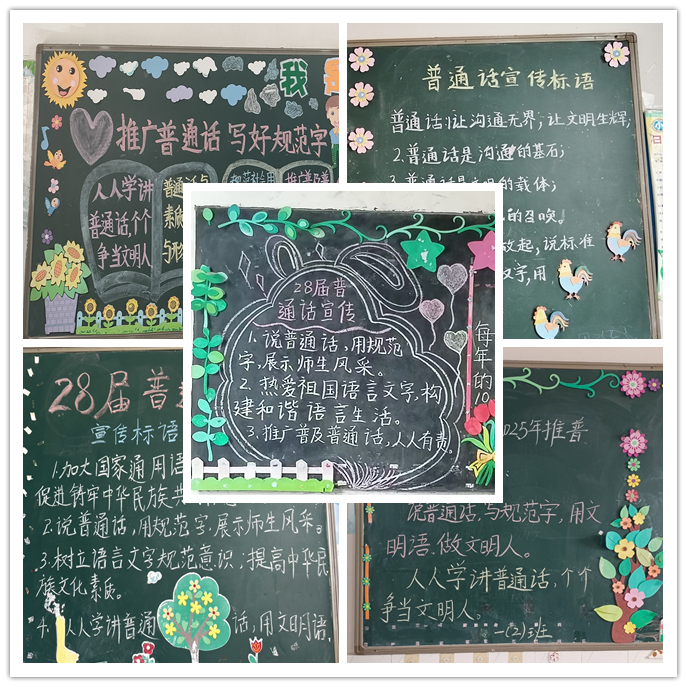 我
推广普通话 写好规范字
人人学讲
普通话,个个
争当文明人
普通话与
素质
与形
推广普及普
普通话宣传标语
普通话!让沟通无界;让文明生辉;
2.普通话是沟通的基石;
3.普通话是文明的载体;
的召唤。
做起,说标准
汉字,用
28届普
通话宣传
1.说普通话,用规范
字,展示师生风采。
2.热爱祖国语言文字,构
建和谐语言生活。
3.推广普及普通话,人人有责。
每年的10
28届普通
宣传标语
1.加大国家通用语
促进铸牢中华民族共
2.说普通话,用规范字,展示师生风采。
3.树立语言文字规范意识;提高中华民
族文化素质。
4.人人学讲普通话,用文明语,
2025年推普
说普通话,写规范字,用文
明语,做文明人。
人人学讲普通话,个个
争当文明人。
一(2)班